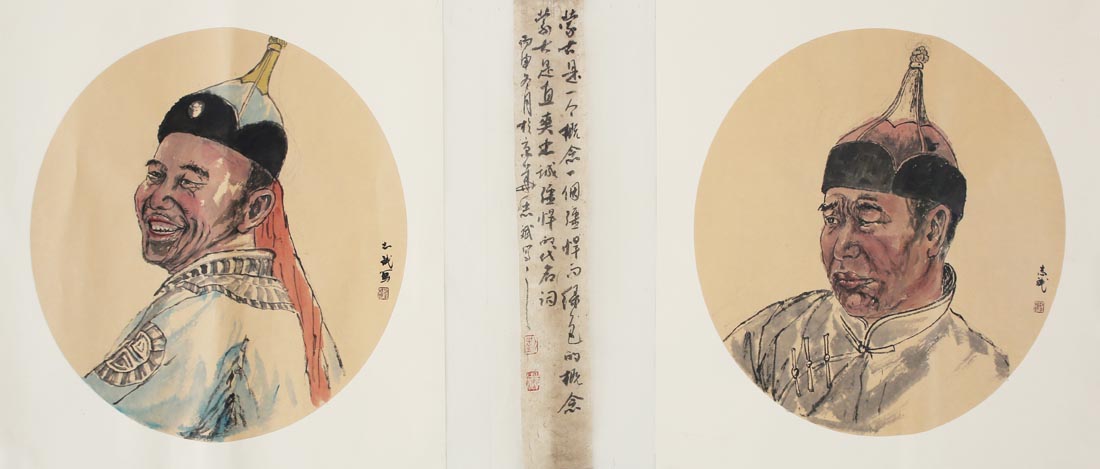 志斌寫
蒙古是一个概念一個彊悍而绿色的概念
蒙古是直爽忠诚彊悍的代名词
丙申冬月於京華志斌写之
志斌